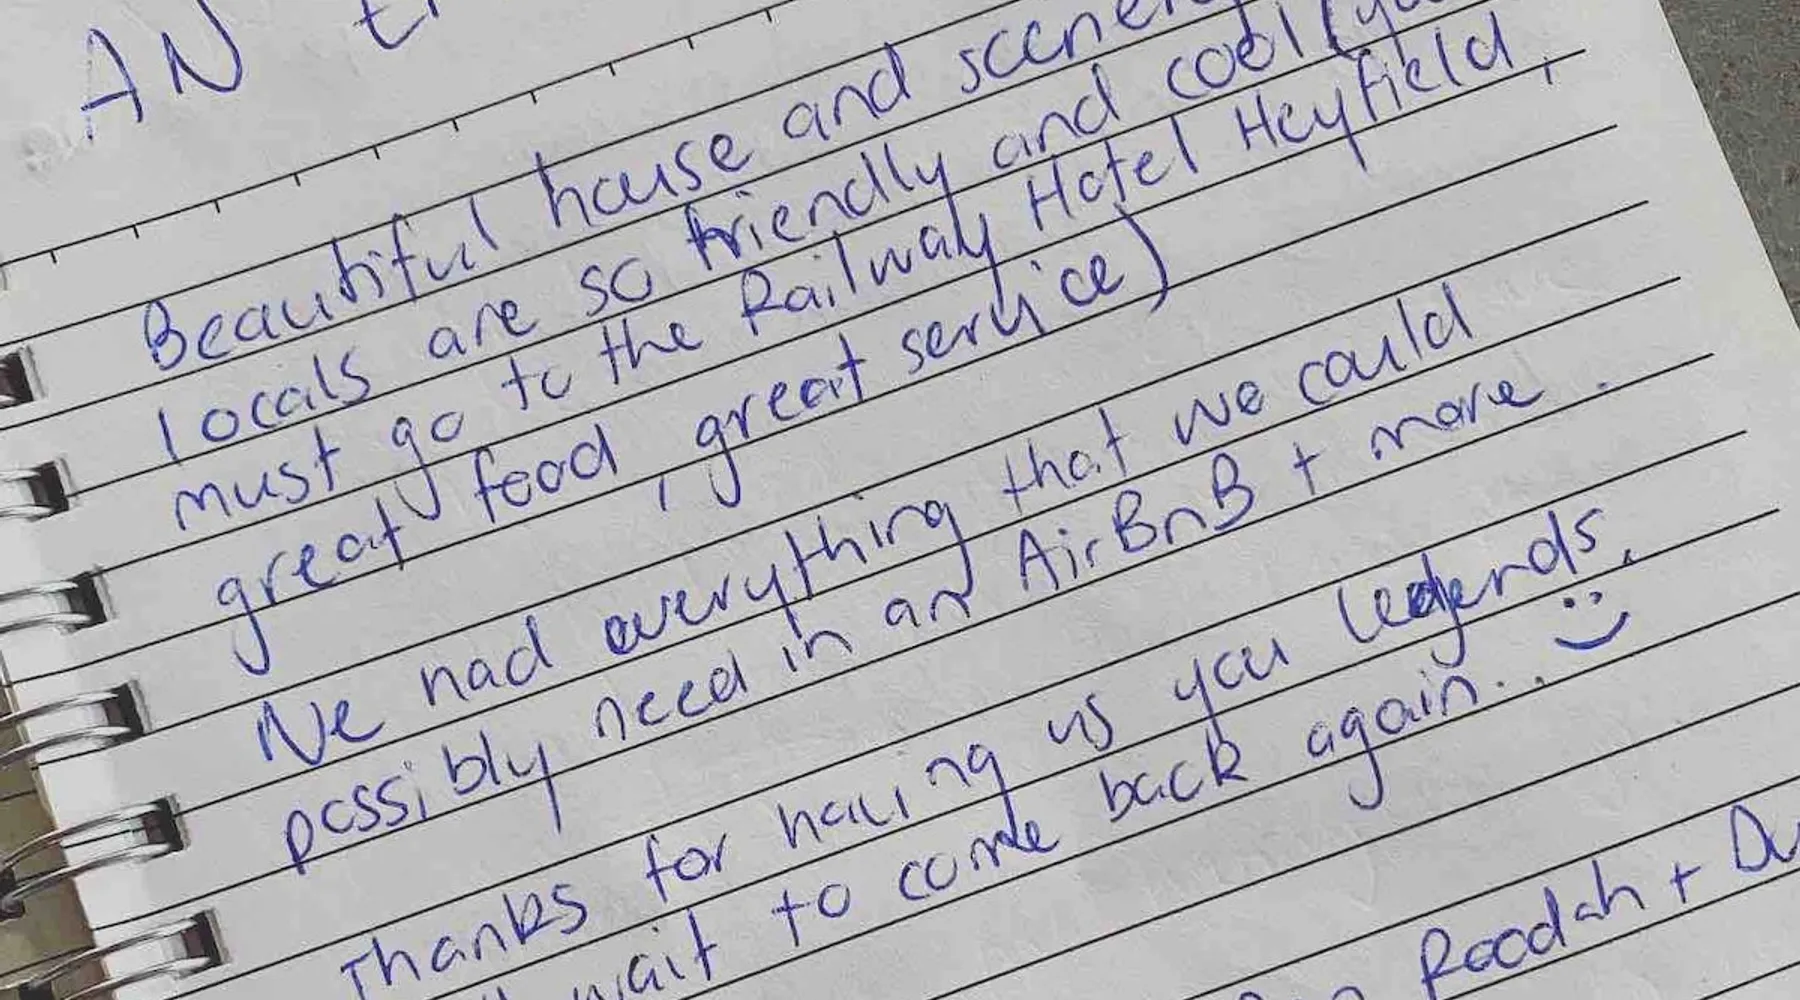 AN
Beautiful house and
locals are so friendly and cool (you
must go to the Railway Hotel Heyfield,
great food, great service)
We had everything that we could
possibly need in an AirBnB + more.
Thanks for having us you legends,
wait to come back again... :)
Roodah +